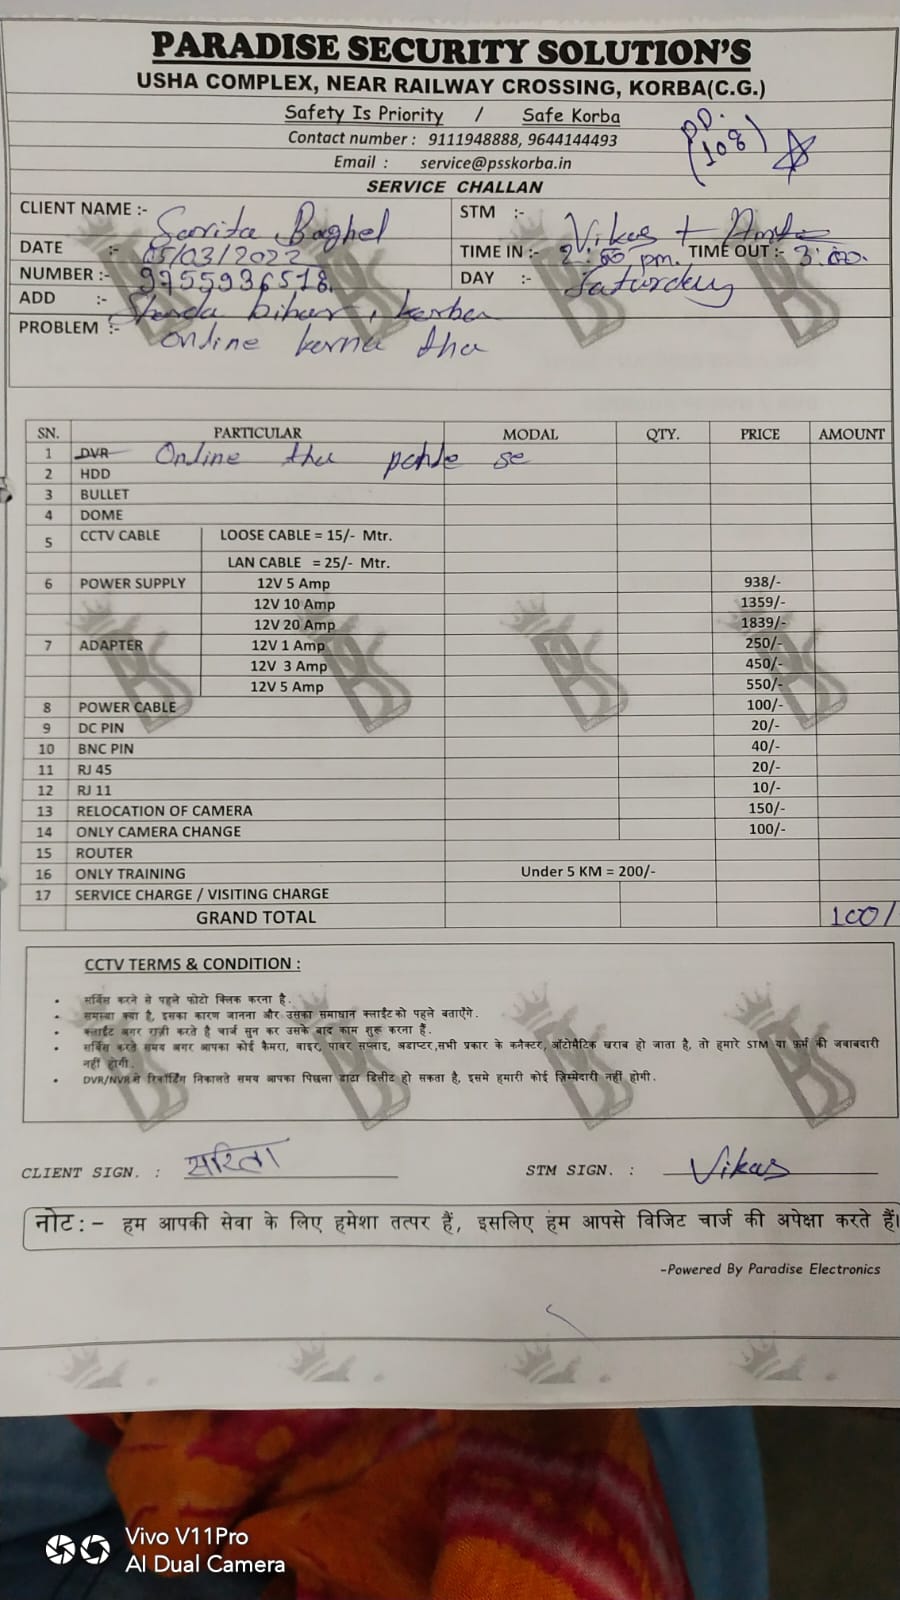 PARADISE SECURITY SOLUTION'S
USHA COMPLEX, NEAR RAILWAY CROSSING, KORBA(C.G.)
Safety Is Priority / Safe Korba
Contact number : 9111948888, 9644144493
Email : service@psskorba.in
P.D.
(108)
SERVICE CHALLAN
CLIENT NAME :- Sarita Baghel STM :- Vikas +
DATE :- 05/03/2022 TIME IN :- 2:50 pm. TIME OUT :- 3:00.
NUMBER :- 9755936518 DAY :- Saturday
ADD :- Sharda bihar, korba
PROBLEM :- online karna tha
SN. PARTICULAR MODAL QTY. PRICE AMOUNT
1 DVR Online tha pahle se
2 HDD
3 BULLET
4 DOME
5 CCTV CABLE LOOSE CABLE = 15/- Mtr.
LAN CABLE = 25/- Mtr.
6 POWER SUPPLY 12V 5 Amp 938/-
12V 10 Amp 1359/-
12V 20 Amp 1839/-
7 ADAPTER 12V 1 Amp 250/-
12V 3 Amp 450/-
12V 5 Amp 550/-
8 POWER CABLE 100/-
9 DC PIN 20/-
10 BNC PIN 40/-
11 RJ 45 20/-
12 RJ 11 10/-
13 RELOCATION OF CAMERA 150/-
14 ONLY CAMERA CHANGE 100/-
15 ROUTER
16 ONLY TRAINING Under 5 KM = 200/-
17 SERVICE CHARGE / VISITING CHARGE
GRAND TOTAL 100/
CCTV TERMS & CONDITION :
• सर्विस करने से पहले फोटो क्लिक करना है.
• समस्या क्या है, इसका कारण जानना और उसका समाधान क्लाईंट को पहले बताएँगे.
• क्लाईंट अगर राज़ी करते है चार्ज सुन कर उसके बाद काम शुरू करना हैं.
• सर्विस करते समय अगर आपका कोई कैमरा, वाइर, पावर सप्लाइ, अडाप्टर,सभी प्रकार के कनैक्टर, ऑटोमैटिक खराब हो जाता है, तो हमारे STM या फ़र्म की जवाबदारी
नहीं होगी.
• DVR/NVR से रिकॉर्डिंग निकालते समय आपका पिछला डाटा डिलीट हो सकता है, इसमे हमारी कोई ज़िम्मेदारी नहीं होगी.
CLIENT SIGN. : सरिता STM SIGN. : Vikas
नोट:- हम आपकी सेवा के लिए हमेशा तत्पर हैं, इसलिए हम आपसे विजिट चार्ज की अपेक्षा करते हैं।
-Powered By Paradise Electronics
Vivo V11Pro
AI Dual Camera